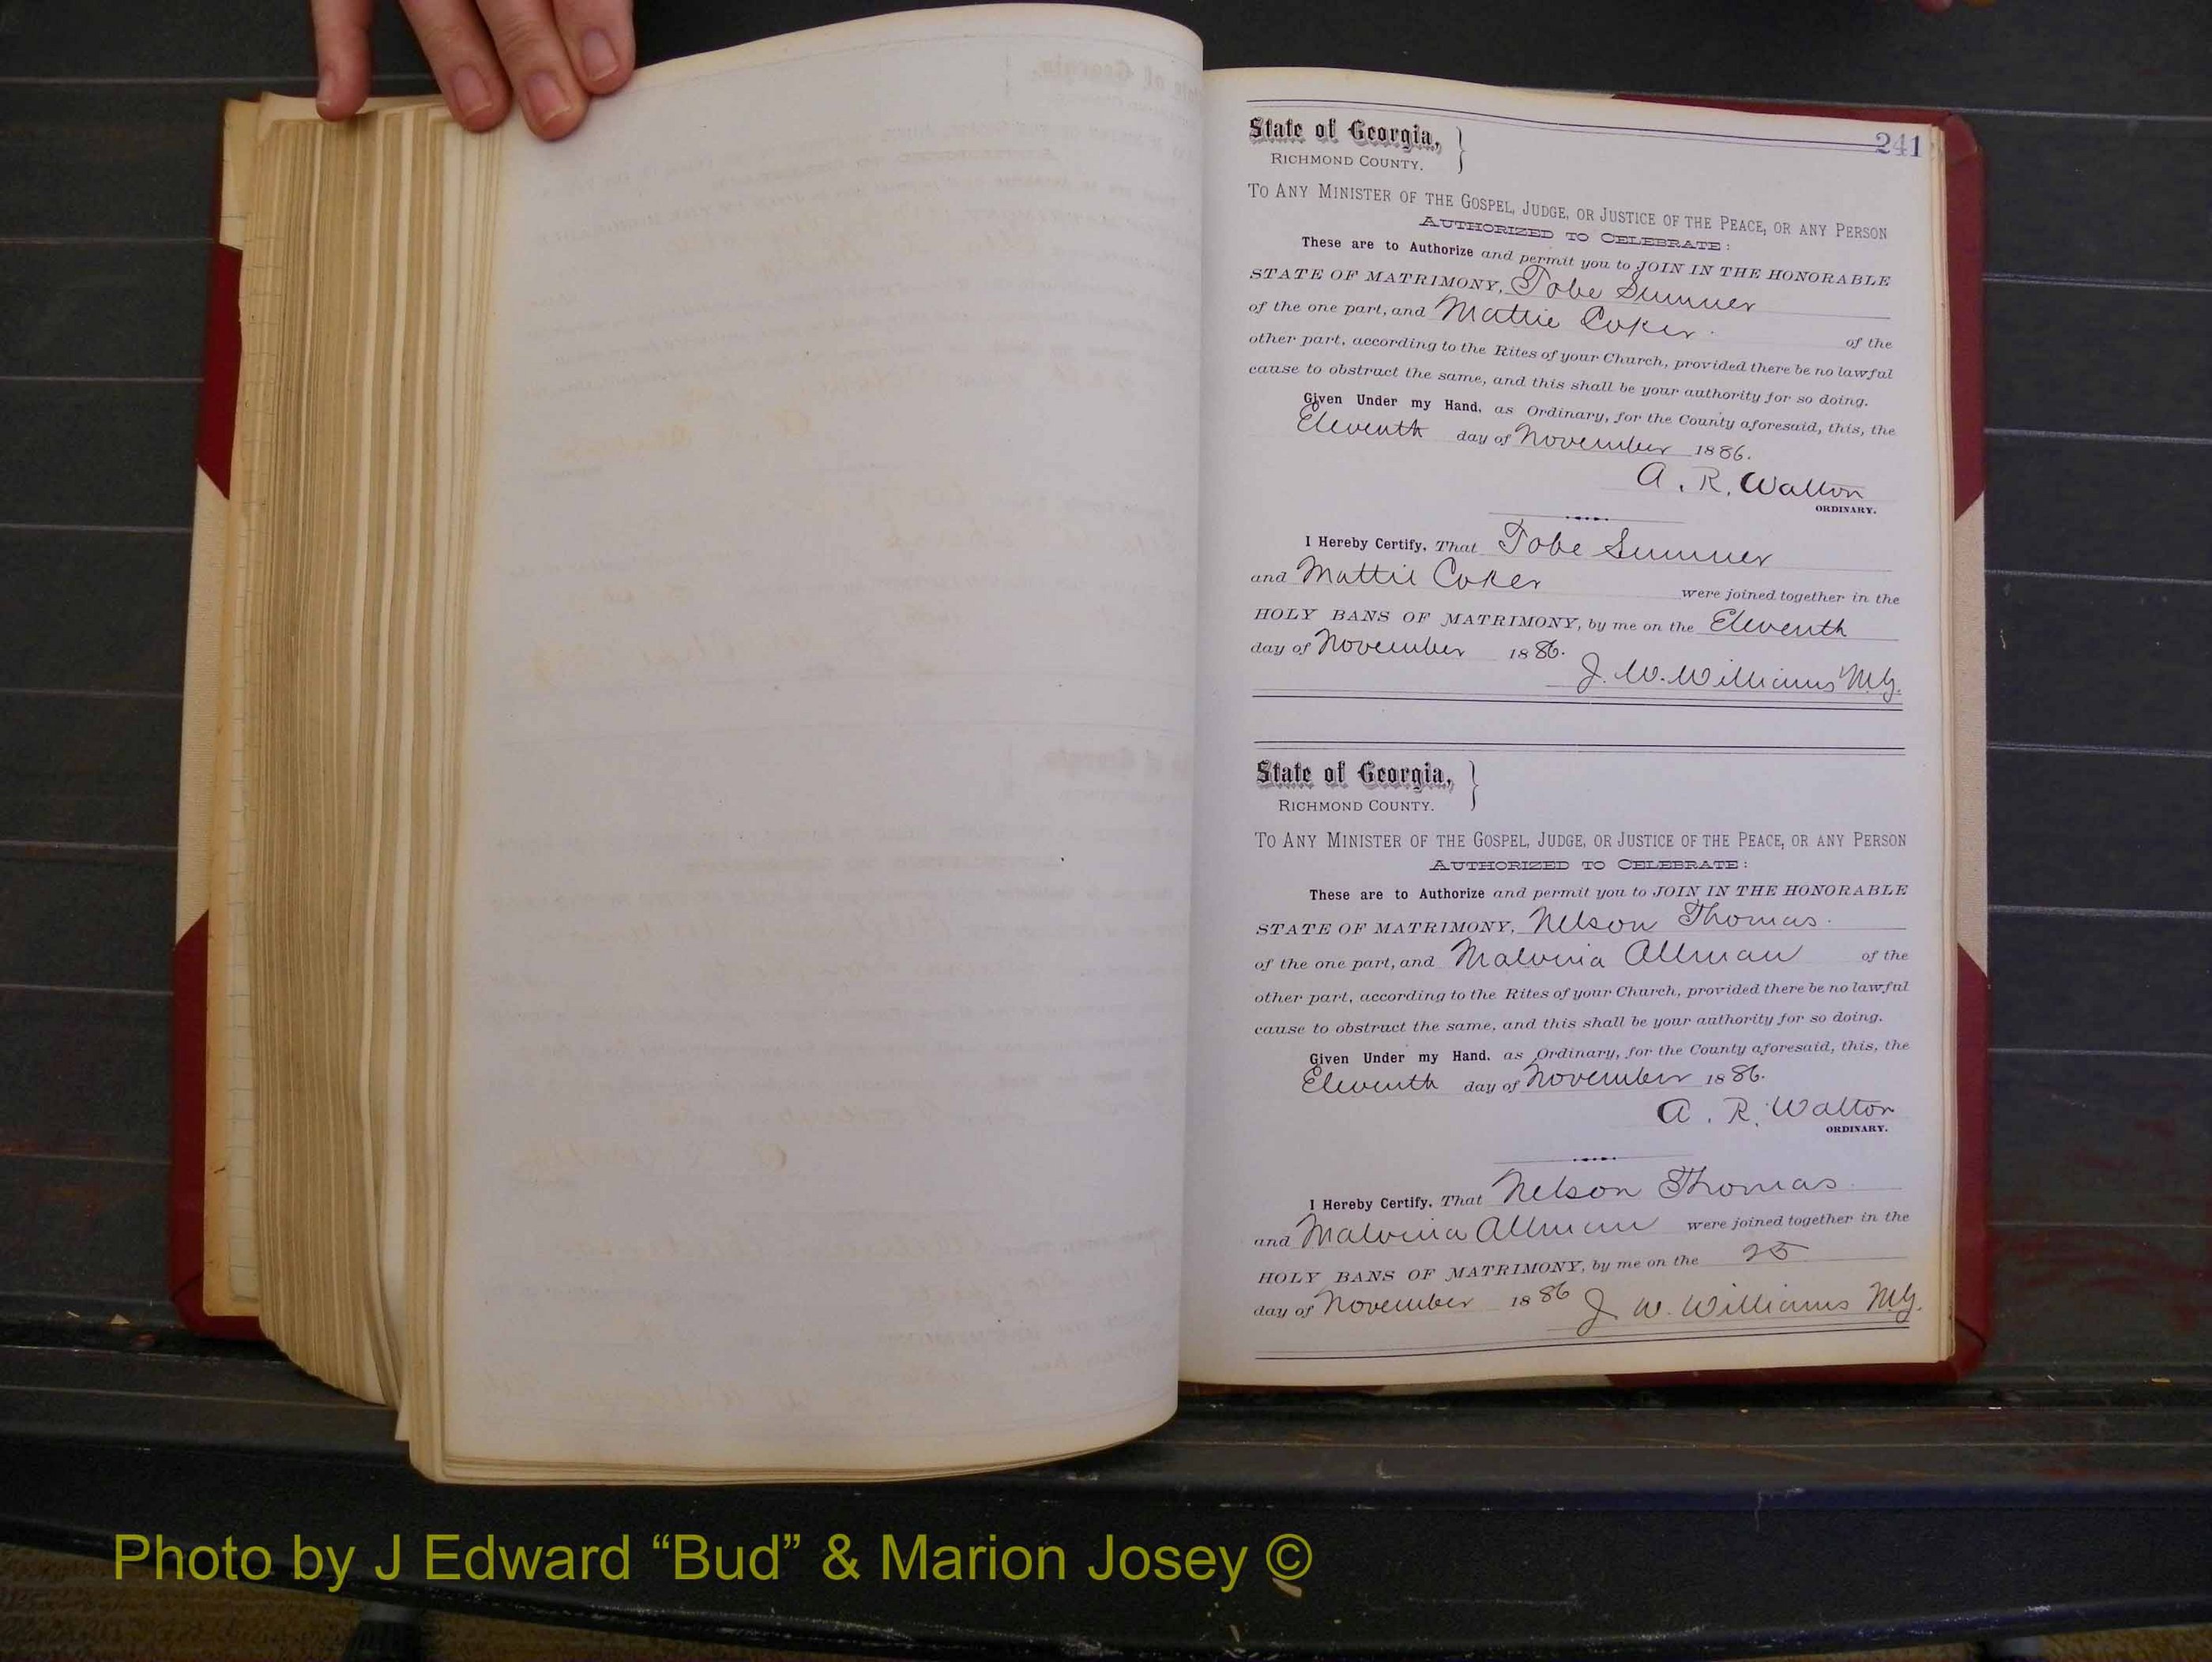 241
State of Georgia,
RICHMOND COUNTY.
TO ANY MINISTER OF THE GOSPEL, JUDGE, OR JUSTICE OF THE PEACE, OR ANY PERSON
AUTHORIZED TO CELEBRATE:
These are to Authorize and permit you to JOIN IN THE HONORABLE
STATE OF MATRIMONY, Tobe Sumner
of the one part, and Mattie Coker of the
other part, according to the Rites of your Church, provided there be no lawful
cause to obstruct the same, and this shall be your authority for so doing.
Given Under my Hand, as Ordinary, for the County aforesaid, this, the
Eleventh day of November 1886.
A. R. Walton
ORDINARY.
I Hereby Certify, That Tobe Sumner
and Mattie Coker were joined together in the
HOLY BANS OF MATRIMONY, by me on the Eleventh
day of November 1886.
J. W. Williams M.G.
State of Georgia,
RICHMOND COUNTY.
TO ANY MINISTER OF THE GOSPEL, JUDGE, OR JUSTICE OF THE PEACE, OR ANY PERSON
AUTHORIZED TO CELEBRATE:
These are to Authorize and permit you to JOIN IN THE HONORABLE
STATE OF MATRIMONY, Nelson Thomas.
of the one part, and Malvina Allman of the
other part, according to the Rites of your Church, provided there be no lawful
cause to obstruct the same, and this shall be your authority for so doing.
Given Under my Hand, as Ordinary, for the County aforesaid, this, the
Eleventh day of November 1886.
A. R. Walton
ORDINARY.
I Hereby Certify, That Nelson Thomas.
and Malvina Allman were joined together in the
HOLY BANS OF MATRIMONY, by me on the 25
day of November 1886 J. W. Williams M.G.
Photo by J Edward “Bud” & Marion Josey ©